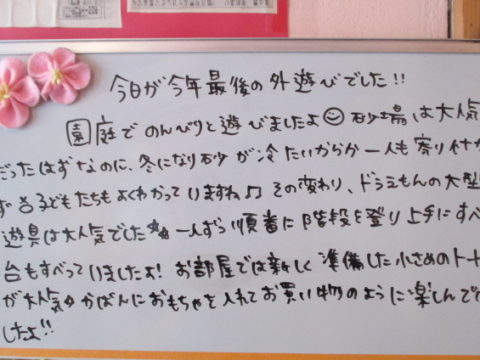 今日が今年最後の外遊びでした!!
園庭でのんびりと遊びましたよ☺砂場は大人気
だったはずなのに、冬になり砂が冷たいからか一人も寄り付か
ず 子どもたちもよくわかっていますね♫ その変わり、ドラえもんの大型
遊具は大人気でした 一人ずつ順番に階段を登り上手にすべ
台もすべっていましたよ! お部屋では新しく準備した小さめのトート
が大人気 かばんにおもちゃを入れてお買い物のように楽しんで
したよ!!